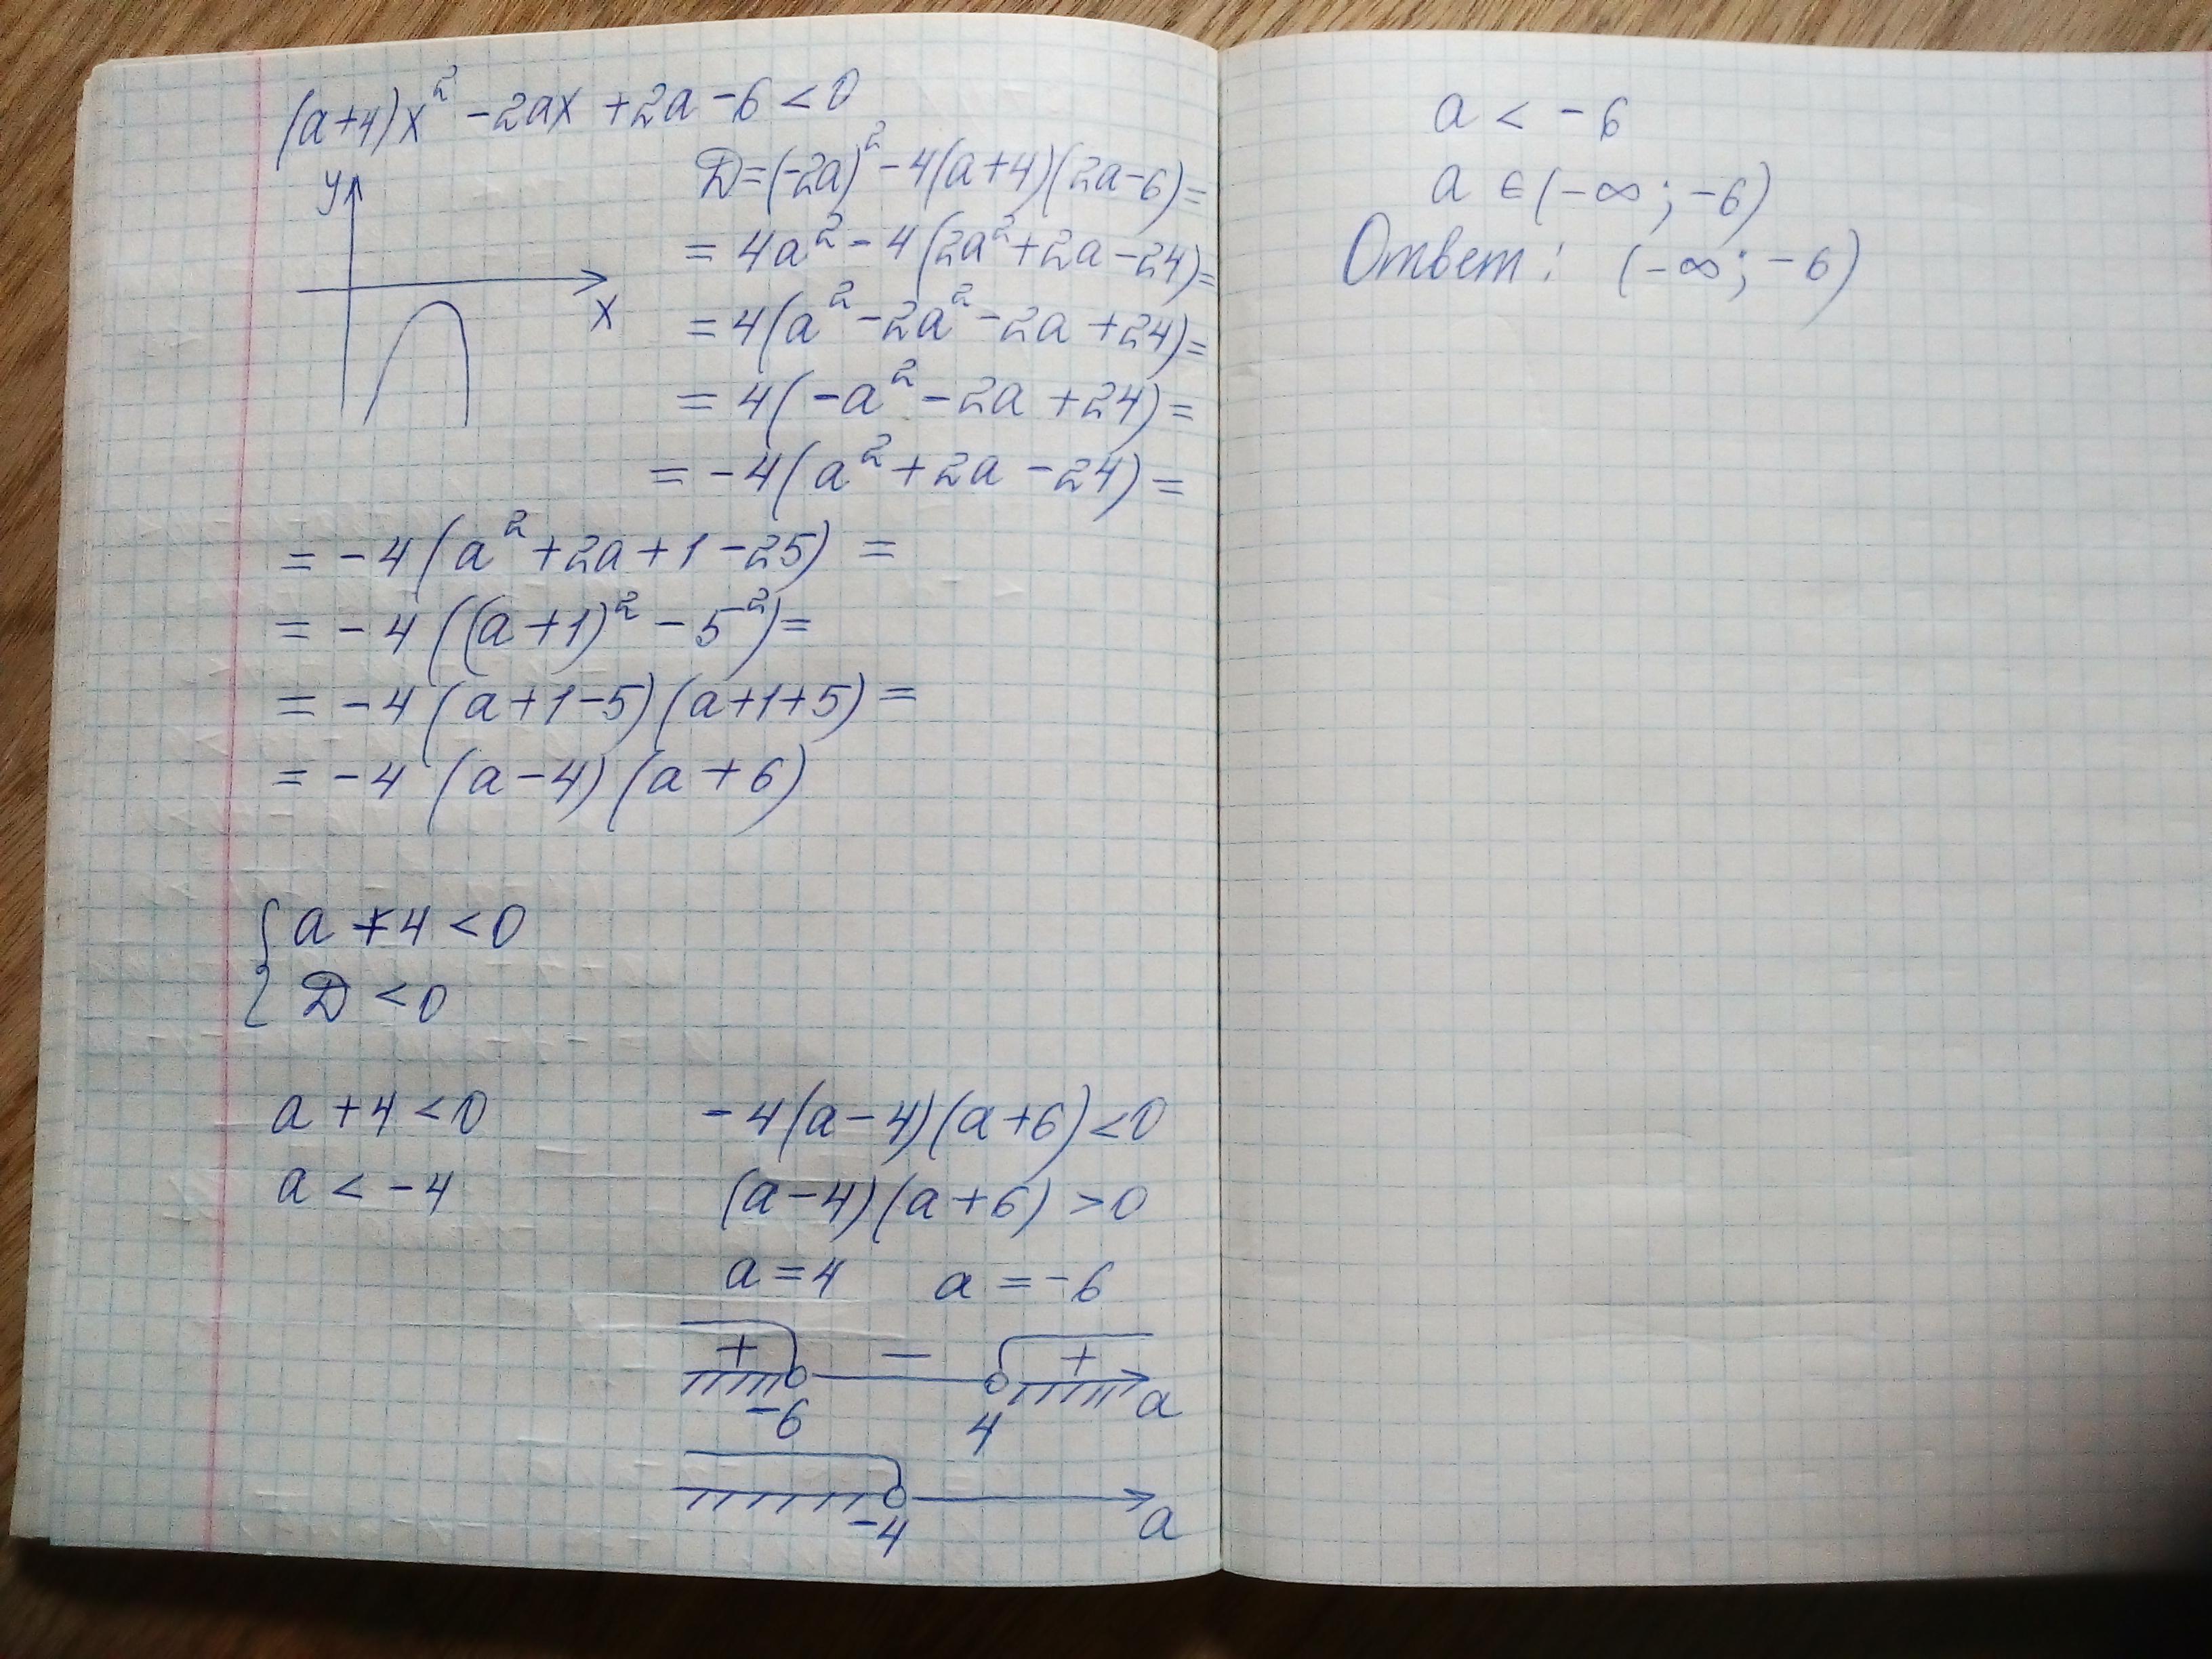 (a+4)x² -2ax +2a -6 < 0
y
x
D=(-2a)² - 4(a+4)(2a-6)=
= 4a² - 4(2a²+2a-24)=
= 4(a² -2a² -2a +24)=
= 4(-a² -2a +24)=
= -4(a² +2a -24)=
= -4(a² +2a+1 -25) =
= -4((a+1)² - 5²)=
= -4(a+1-5)(a+1+5)=
= -4(a-4)(a+6)
{ a +4 < 0
D < 0
a +4 < 0
a < -4
-4(a-4)(a+6)<0
(a-4)(a+6) > 0
a = 4 a = -6
+ − +
-6 4 a
-4 a
a < -6
a ∈ (-∞; -6)
Ответ: (-∞; -6)